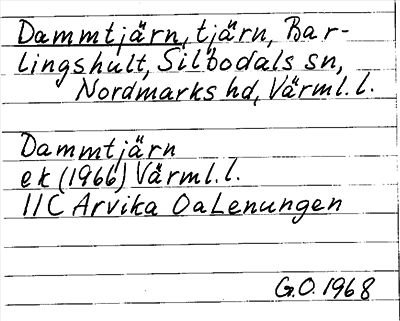 Dammtjärn, tjärn, Bar-
lingshult, Silbodals sn,
Nordmarks hd, Värml. l.
Dammtjärn
ek (1966) Värml. l.
11C Arvika Oa Lenungen
G.O. 1968